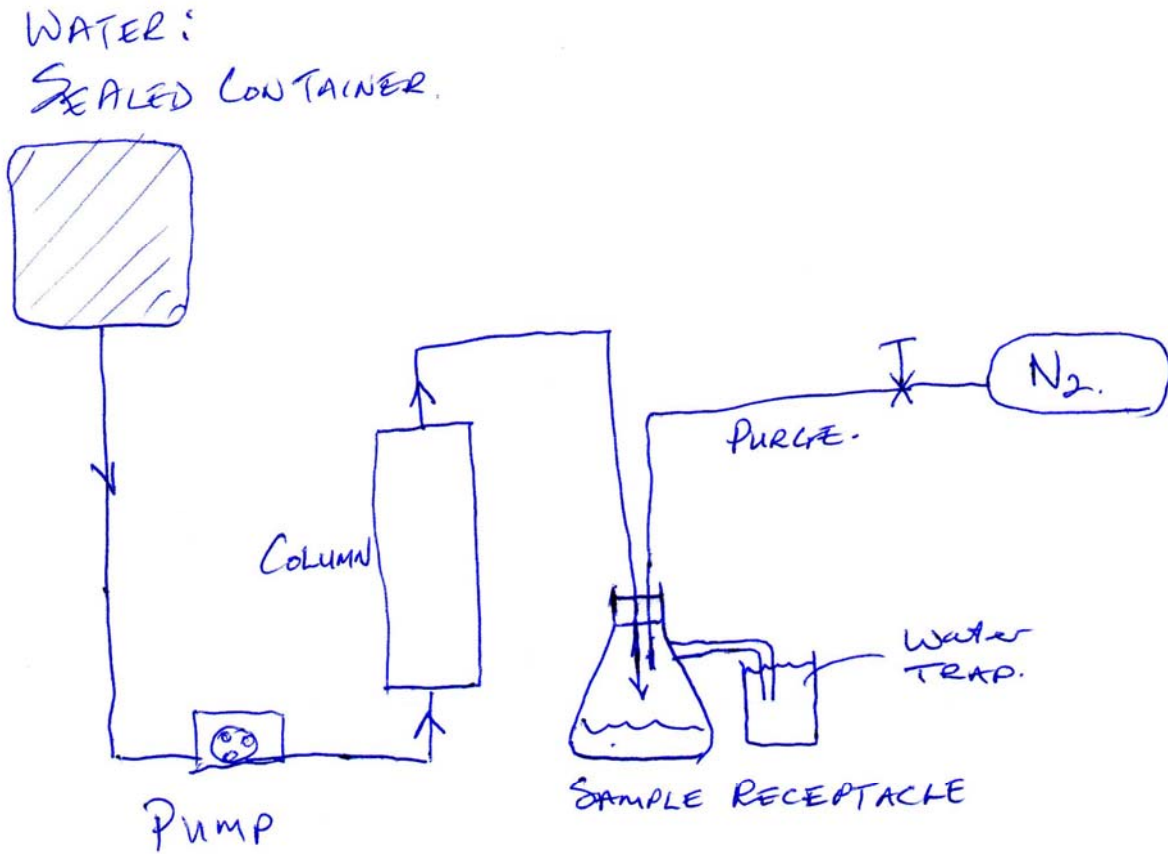 WATER:
SEALED CONTAINER.
N2.
PURGE.
COLUMN
Water
TRAP.
SAMPLE RECEPTACLE
PUMP